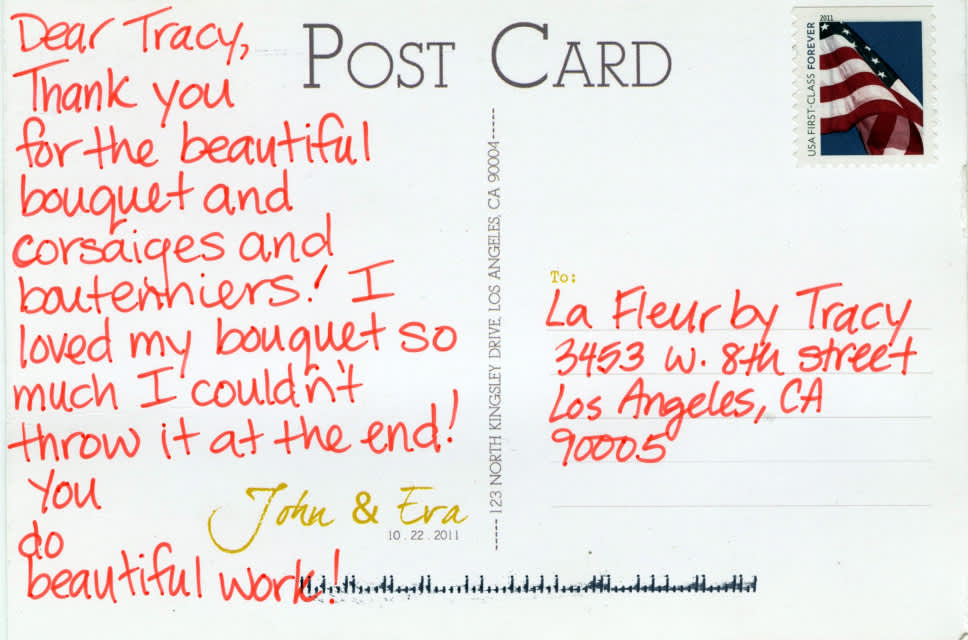 Dear Tracy,
Thank you
for the beautiful
bouquet and
corsaiges and
boutenniers! I
loved my bouquet so
much I couldn't
throw it at the end!
You
do
beautiful work!
John & Eva
10.22.2011
POST CARD
123 NORTH KINGSLEY DRIVE, LOS ANGELES, CA 90004
2011
USA FIRST-CLASS FOREVER
To:
La Fleur by Tracy
3453 W. 8th street
Los Angeles, CA
90005